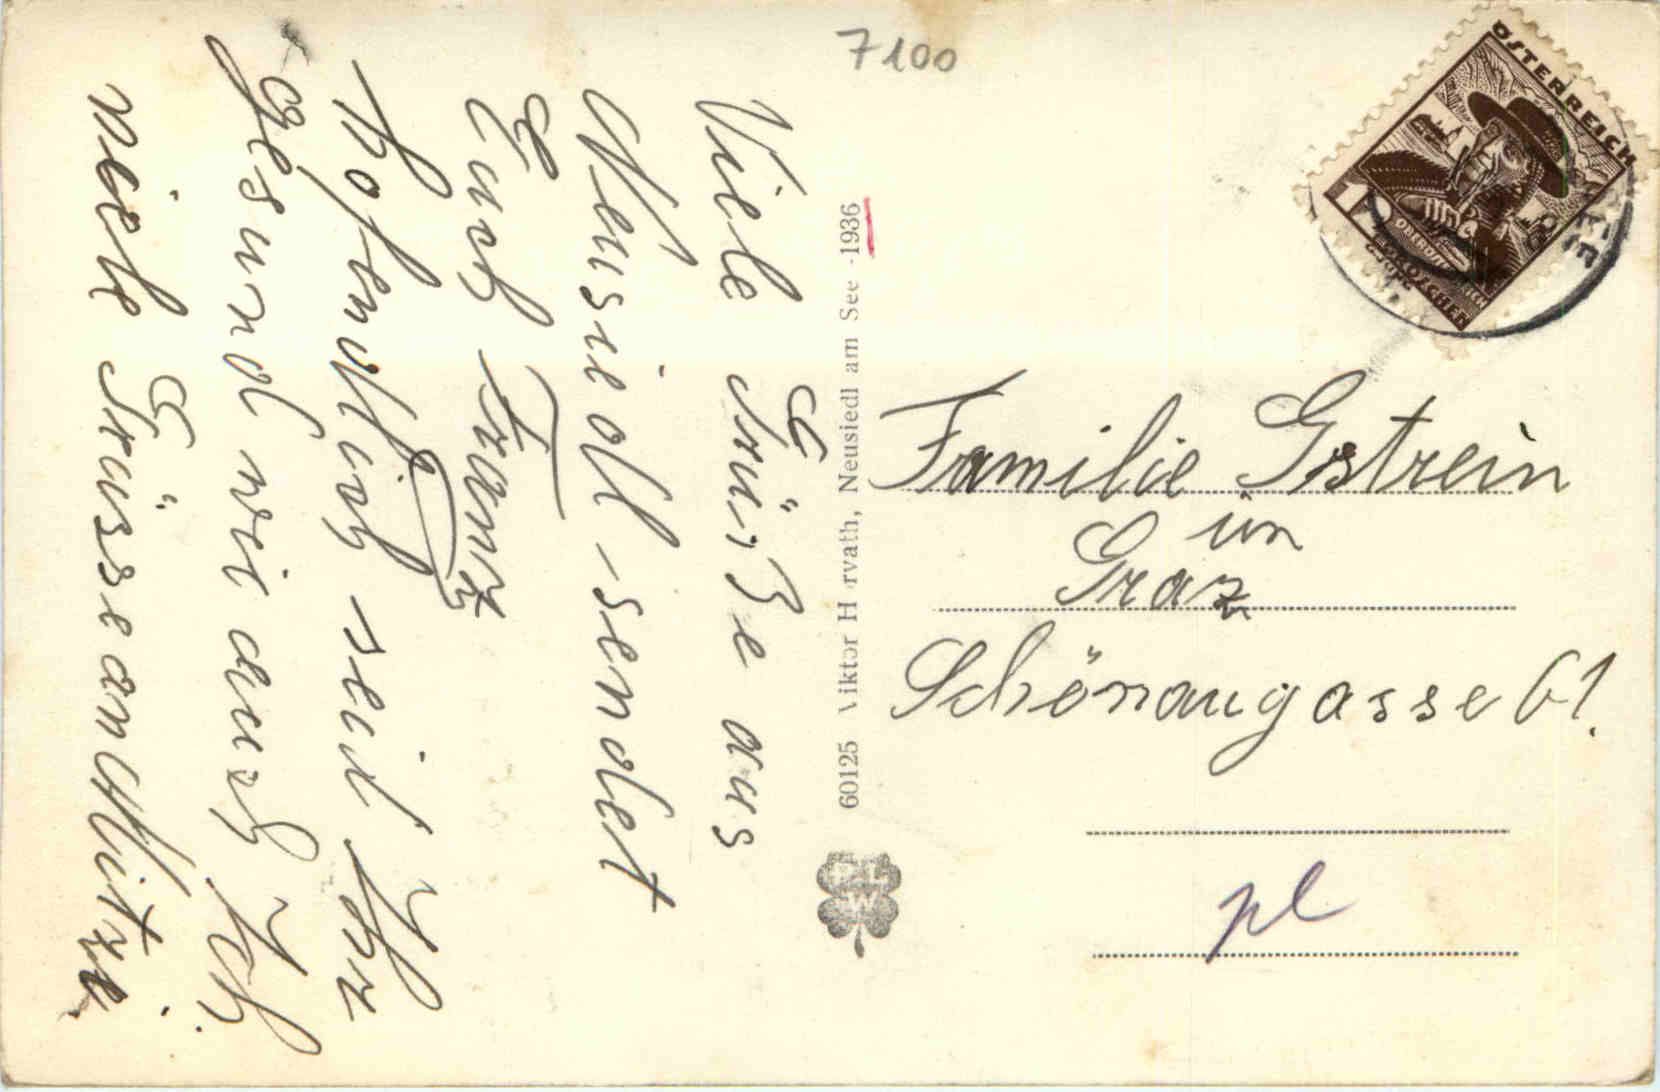 Viele Grüße aus
Neusiedl sendet
Euch Franz
Hofendlich seid Ihr
gesund wie auch Ich.
viele Grüsse an Mitzi
7100
60125 Viktor Horvath, Neusiedl am See - 1936
PL
W
ÖSTERREICH
12 GROSCHEN
Familie Gstrein
in
Graz
Schönaugasse 61.
pl